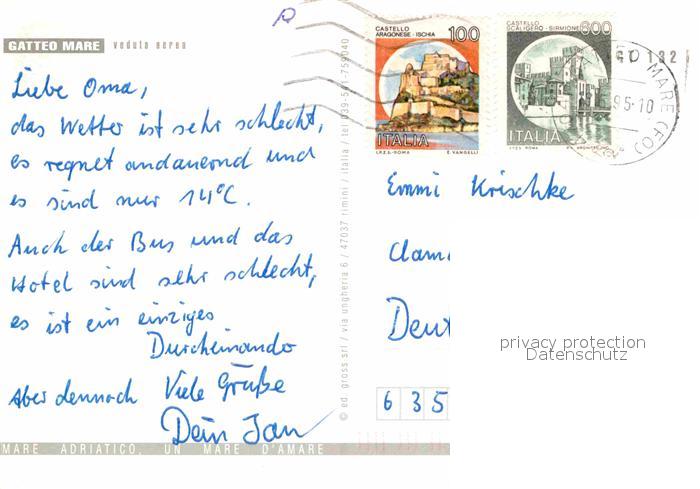 GATTEO MARE veduta aerea
Liebe Oma,
das Wetter ist sehr schlecht,
es regnet andauernd und
es sind nur 14°C.
Auch der Bus und das
Hotel sind sehr schlecht,
es ist ein einziges
Durcheinando
Aber dennoch Viele Grüße
Dein Jan
MARE ADRIATICO, UN MARE D'AMARE
© ed. gross srl / via ungheria 6 / 47037 rimini / italia / tel 039-541-759040
CASTELLO
ARAGONESE - ISCHIA 100
ITALIA
I.P.Z.S. - ROMA E. VANGELLI
CASTELLO
SCALIGERO - SIRMIONE 600
ITALIA
I.P.Z.S. ROMA
MARE (FO)
95-10
Emmi Krischke
Deut
635
privacy protection
Datenschutz